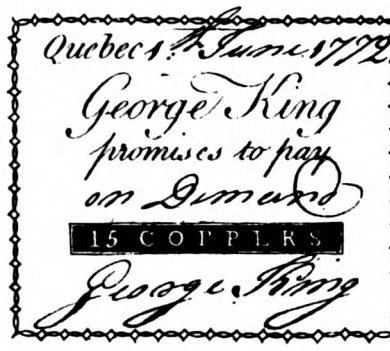 Quebec 1.st June 1772.
George King
promises to pay
on Demand
15 COPPERS
George King